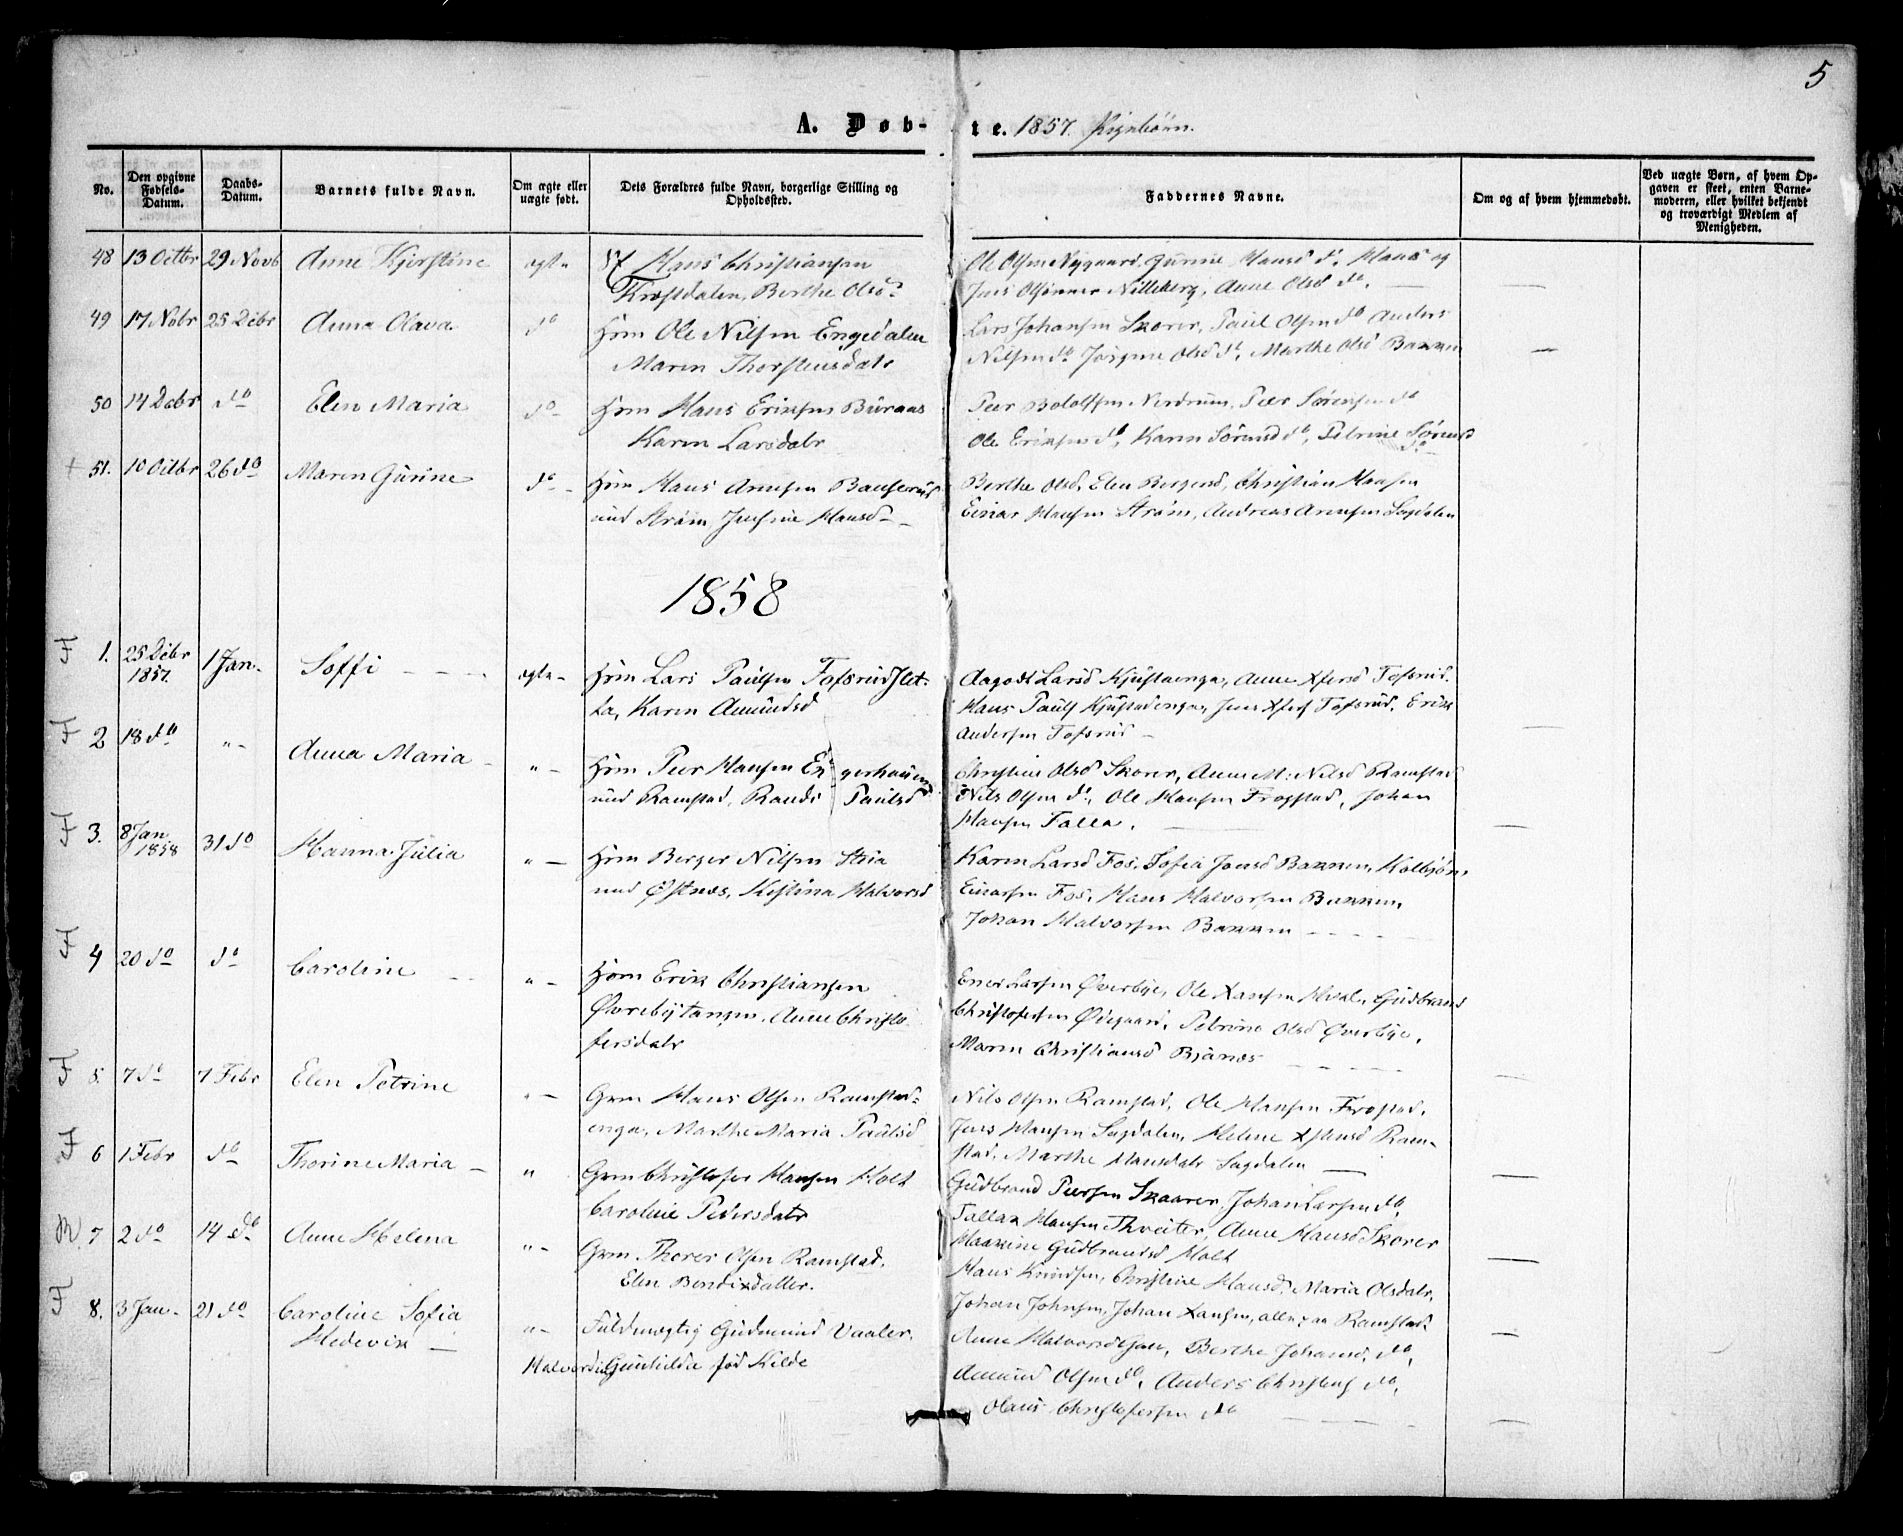 5
A. Døb-te. 1857.
No.
Den opgivne Fødsels-Datum.
Daabs-Datum.
Barnets fulde Navn.
Om ægte eller uægte født.
Dets Forældres fulde Navn, borgerlige Stilling og Opholdssted.
Faddernes Navne.
Om og af hvem hjemmedøbt.
Ved uægte Børn, af hvem Opgaven er skeet, enten Barnemoderen, eller hvilket bekjendt og troværdigt Medlem af Menigheden.
48 13 Octbr 29 Novb Anne Kjerstine ægte Hans Christiansen
Berthe Olsd
Ole Olsen Nygaard, Gunine Hansd do, Hans og
Jens Olsønner Nilleberg, Anne Olsd do.
49 17 Nobr 25 Debr Anna Olava do Hsm Ole Nilsen Engedalen
Maren Thorstensdatr
Lars Johansen Skorer, Paul Olsen do Anders
Nilsen do Jørgine Olsd do, Marthe Olsd Bakken
50 14 Debr do Elen Maria do Hsm Hans Eriksen Buraas
Karen Larsdatr
Peer Bottolfsen Nerdrum, Peer Sørensen do
Ole Eriksen do, Karen Sørensd do, Petrine Sørensd
do
+ 51. 10 Octbr 26 do Maren Gurine do Hsm Hans Arnesen Bauserud
und Strøm, Jensine Hansd
Berthe Olsd, Elen Bergersd, Christian Hansen
Einar Hansen Strøm, Andreas Arnesen Sagdalen
1858
F 1. 25 Debr 1857. 1 Jan. Soffi ægte Hsm Lars Paulsen Fossrudslet-
ta, Karen Amundsd
Aagodt Larsd Kjustaenga, Anne Xfersd Fossrud.
Hans Pauls Kjustadenga, Jens Xfers Fossrud, Erik
Andersen Fossrud
F 2 18 do " Anna Maria " Hsm Peer Hansen Engerhaugen
und Ramstad, Randi Paulsd
Christine Olsd Skorer, Anne M. Nilsd Ramstad
Nils Olsen do, Ole Hansen Frogstad, Johan
Hansen Falla.
F 3. 8 Jan 1858 31 do Hanna Julia " Hsm Berger Nilsen Stria
und Østnes, Kistina Halvorsd
Karen Larsd Fos, Sofia Jonsd Bakken, Kolbjørn
Einarsen Fos, Hans Halvorsen Bakken,
Johan Halvorsen Bakken
F 4 20 do do Caroline " Hsm Erik Christiansen
Øverebytangen, Anne Christo
fersdatr
Ener Larsen Øverbye, Ole Hansen Hval, Gudbrand
Christofersen Øiegaard, Petrine Olsd Øverbye,
Maren Christiansd Bjanes
F 5. 7 do 7 Febr Elen Petrine " Grm Hans Olsen Ramstad-
enga, Marthe Maria Paulsd
Nils Olsen Ramstad, Ole Hansen Frogstad,
Jens Hansen Sagdalen, Helene Xstiansd Ram-
stad, Marthe Hansdatr Sagdalen
F 6 1 Febr do Thorine Maria " Grm Christofer Hansen Holt
Caroline Pedersdatr
Gudbrand Peersen Skaarer, Johan Larsen do,
Hansen Thveiter, Anne Hansd Skorer
Gudbrandsd Holt
7 2 do 14 do Anne Helena " Grm Thorer Olsen Ramstad,
Elen Bendixdatter.
Hans Knudsen, Christine Hansd, Maria Olsdatr,
Johan Johnsen, Johan Hansen, alle paa Ramstad
F 8. 3 Jan. 21 do Caroline Sofia
Hedevik
" Fuldmægtig Gudmund Vaaler,
Gunhilde fød Kilde
Anne Halvorsd, Berthe Johansd, do,
Amund Olsen do, Anders Christens do,
Olaus Christofersen do